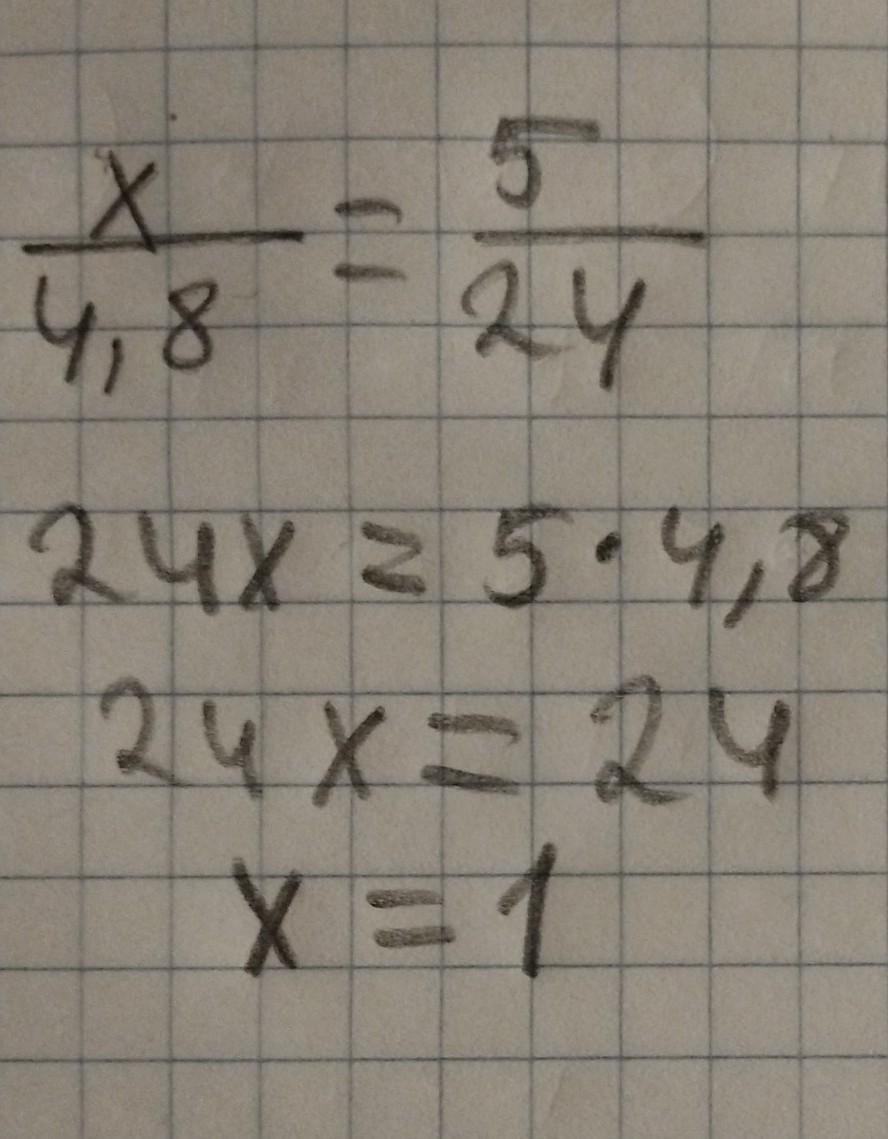 x/4,8 = 5/24
24x = 5·4,8
24x = 24
x = 1